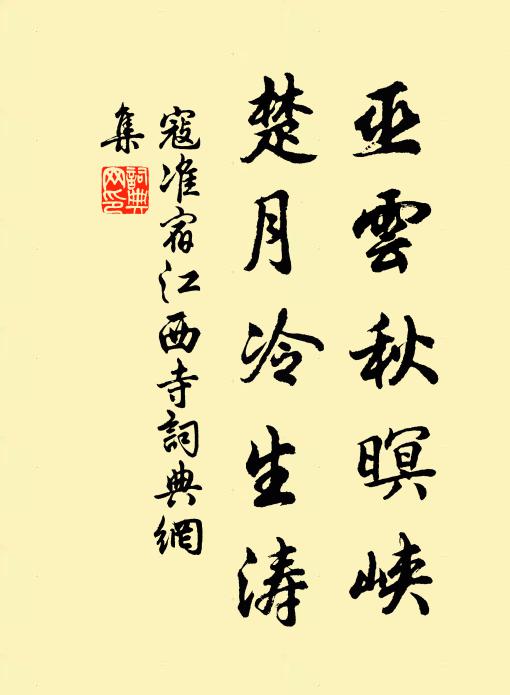 巫雲秋暝峽
楚月冷生涛
寇准宿江西寺詞典網
集
詞典
网印